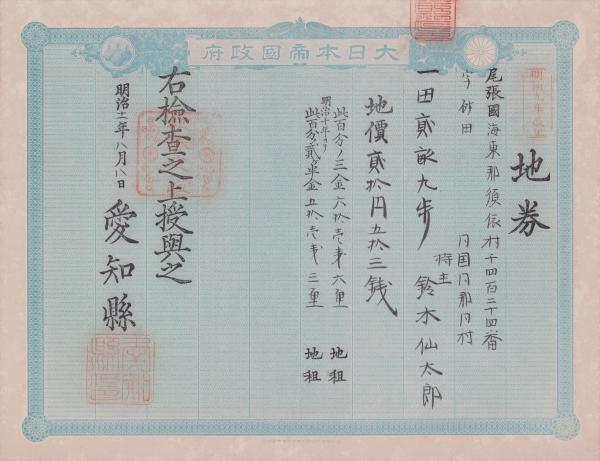 大日本帝國政府
地券
尾張國海東郡須依村千四百二十四番
字砂田
同国同郡同村
一田貳畝九歩
持主 鈴木仙太郎
地價貳拾円五拾三銭
此百分ノ三金六拾壱銭六厘 地租
明治十年ヨリ
此百分ノ貳ヶ半金五拾壱銭三厘 地租
右檢查之上授與之
明治十二年八月八日
愛知縣